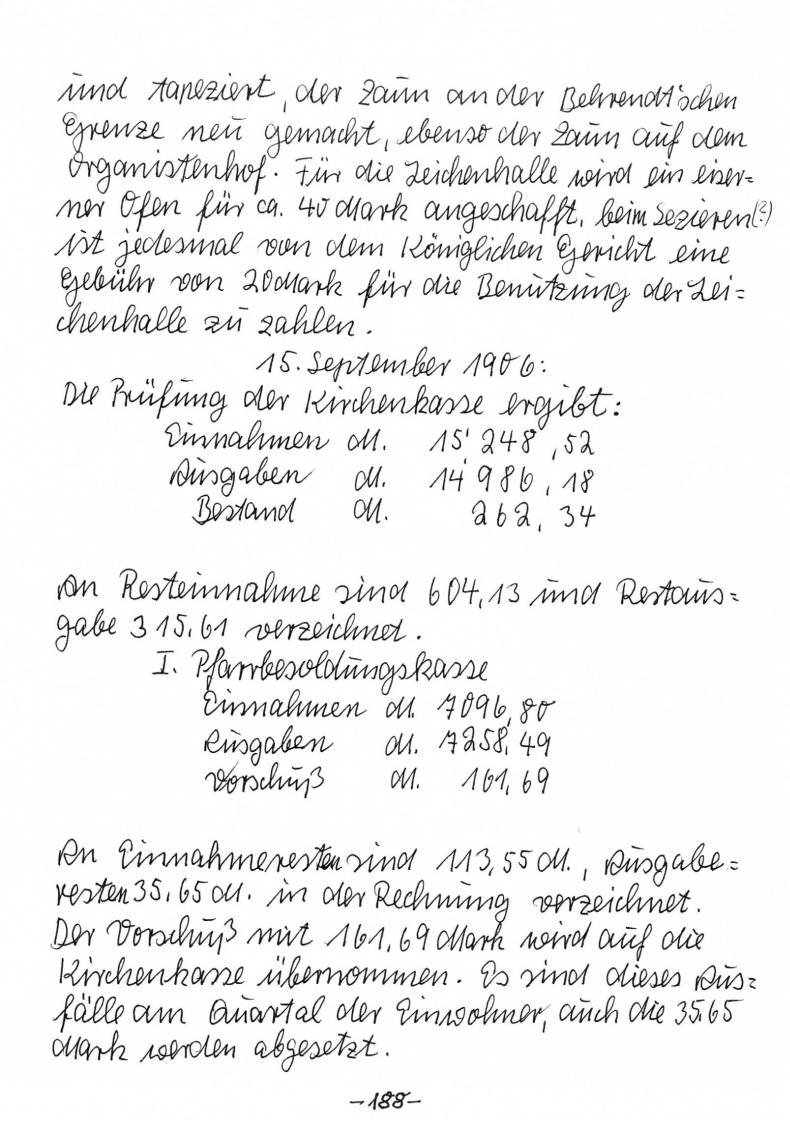 und tapeziert, der Zaun an der Behrendt'schen
Grenze neu gemacht, ebenso der Zaun auf dem
Organistenhof. Für die Leichenhalle wird ein eiser=
ner Ofen für ca. 40 Mark angeschafft, beim Sezieren(?)
ist jedesmal von dem Königlichen Gericht eine
Gebühr von 20 Mark für die Benutzung der Lei=
chenhalle zu zahlen.
15. September 1906:
Die Prüfung der Kirchenkasse ergibt:
Einnahmen M. 15'248,52
Ausgaben M. 14'986,18
Bestand M. 262,34
An Resteinnahme sind 604,13 und Restaus=
gabe 315,61 verzeichnet.
I. Pfarrbesoldungskasse
Einnahmen M. 7096,80
Ausgaben M. 7258,49
Vorschuß M. 161,69
An Einnahmeresten sind 113,55 M., Ausgabe=
resten 35,65 M. in der Rechnung verzeichnet.
Der Vorschuß mit 161,69 Mark wird auf die
Kirchenkasse übernommen. Es sind dieses Aus=
fälle am Quartal der Einwohner, auch die 35,65
Mark werden abgesetzt.
-188-